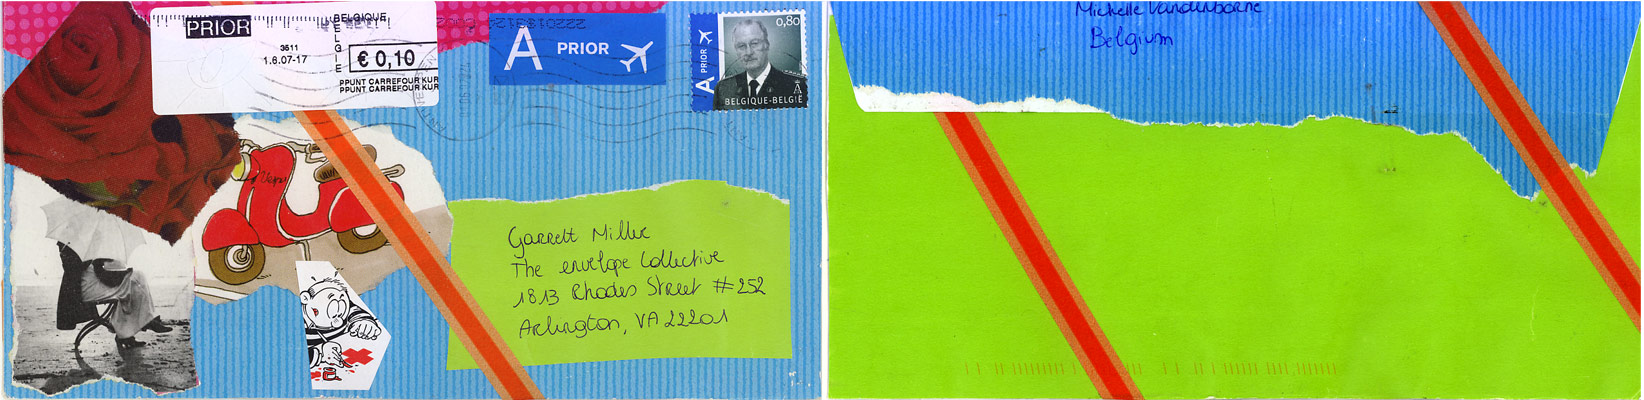 PRIOR
BELGIQUE
BELGIE
3511
1.6.07-17
€ 0,10
PPUNT CARREFOUR KUR
PPUNT CARREFOUR KUR
A PRIOR
0,80
A PRIOR
BELGIQUE-BELGIË
Vespa
Garrett Miller
The envelope Collective
1813 Rhodes Street #252
Arlington, VA 22201
Michelle Vandenborne
Belgium